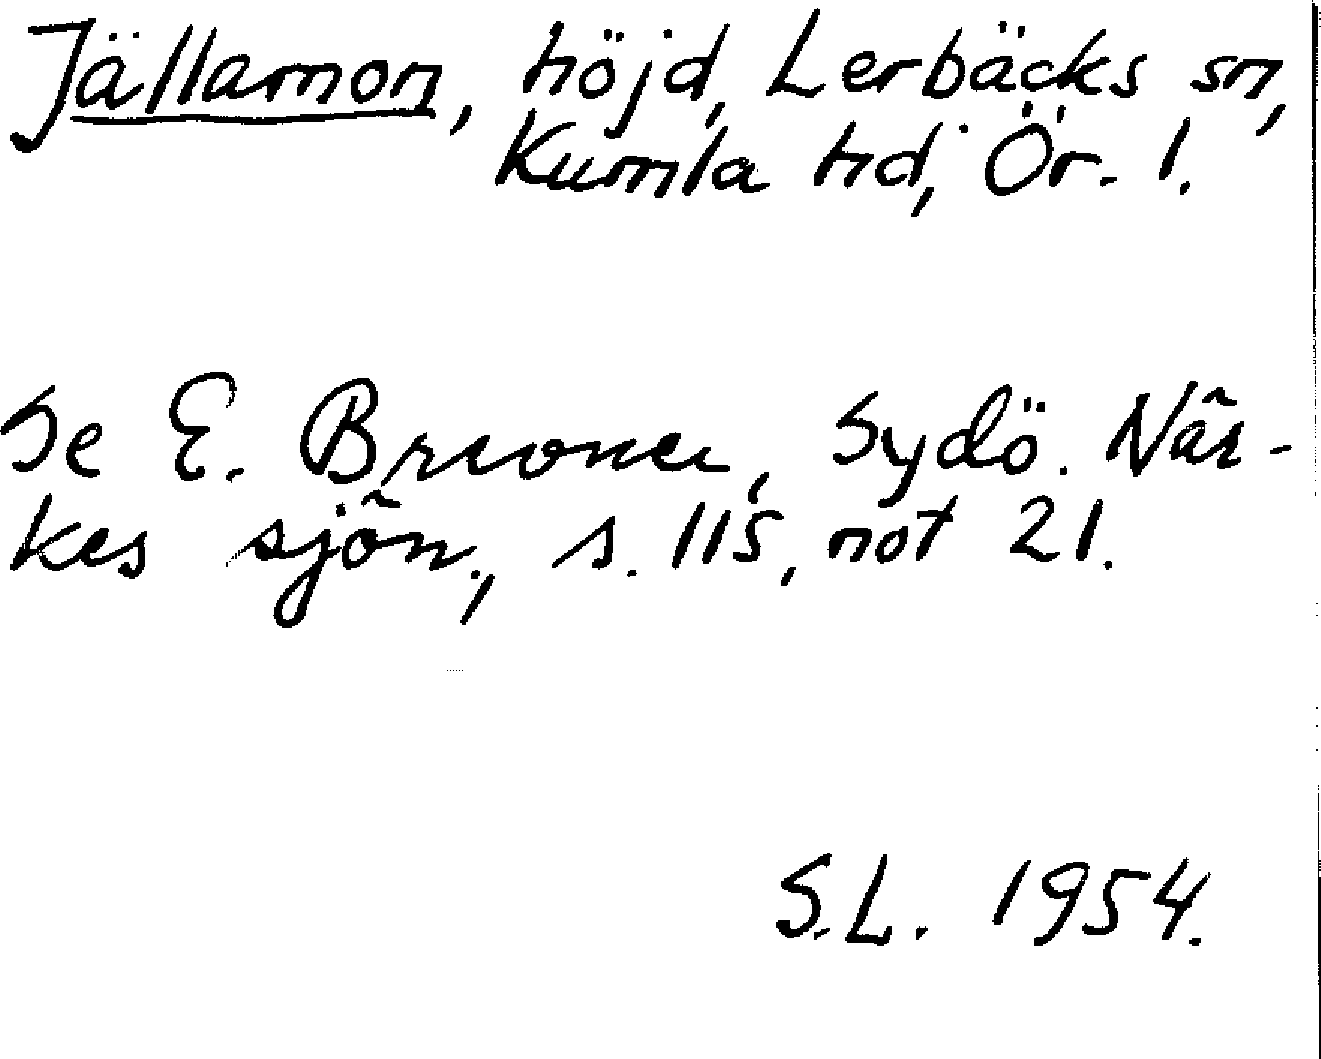 Jällamon, höjd, Lerbäcks sn,
Kumla hd, Ör. l.
Se E. Brevner, Sydö. När-
kes sjön., s. 115, not 21.
S.L. 1954.